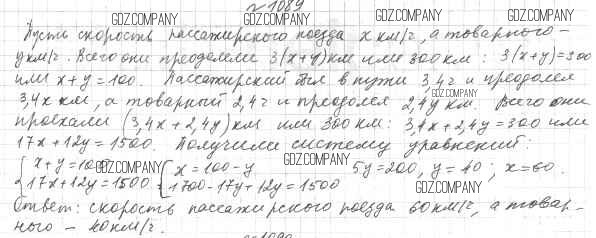 №1089
GDZ.COMPANY GDZ.COMPANY GDZ.COMPANY GDZ.COMPANY
Пусть скорость пассажирского поезда x км/ч, а товарного –
y км/ч. Всего они преодолели 3(x+y) км или 300 км : 3(x+y)=300
или x+y=100. Пассажирский был в пути 3,4 ч и преодолел
GDZ.COMPANY
3,4x км, а товарный 2,4 ч и преодолел 2,4y км. Всего они
проехали (3,4x+2,4y) км или 300 км: 3,4x+2,4y=300 или
17x+12y=1500. Получили систему уравнений:
GDZ.COMPANY GDZ.COMPANY GDZ.COMPANY
{ x+y=100 { x=100-y 5y=200, y=40; x=60.
17x+12y=1500 1700-17y+12y=1500
GDZ.COMPANY
Ответ: скорость пассажирского поезда 60 км/ч, а товар-
ного – 40 км/ч.